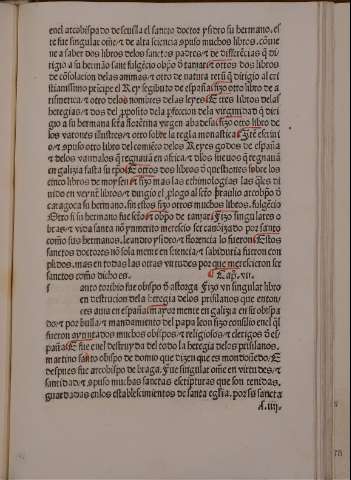 enel arçobispado de seuilla el sancto doctor ysidro su hermano. es
te fue singular ome ⁊ de alta sciencia ⁊ puso muchos libros. cõuie
ne a saber dos libros delos sanctos padres ⁊ de differẽcias q̃ di
rigio a su hermão sant fulgẽcio obp̃o
dos libros
de cõsolacion delas animas ⁊ otro de natura rerũ q̃ dirigio al cri
stianissimo prĩcipe el Rey segibuto de españa ⁊ fizo otro libro de a
rismetica ⁊ otro delos nombres de las leyes ⁊ tres libros delas
heregias ⁊ dos del pposito dela pfeccion dela virginidad q̃ diri
gio a su hermana scã florẽtina virgen abadesa ⁊ fizo otro libro de
los varones illustres ⁊ otro sobre la regla monastica ⁊
⁊ ⁊ puso otro libre del comiẽço delos Reyes godos de españa
⁊ delos vandalos q̃ regnauã en africa ⁊ delos sueuos q̃ regnauã
en galizia fasta su tpo ⁊ otros dos libros de questiones sobre los
cinco libros de moysen ⁊ fizo mas las ethimologias las q̃les di
uido en veynt libros ⁊ dirigio el plogo al scõ braulio arçobp̃o de
caragoça su hermano. sin estos fizo otros muchos libros. fulgẽcio
Otro si su hermano fue scõ ⁊ obp̃o
fizo singulares o
bras ⁊ vida santa nõ ynmerito meresçio ser canõizado por santo
como sus hermanos. leandro ysidro ⁊ florencia lo fueron ⁊ Estos
sanctos doctores nõ sola mente en sciencia ⁊ sabiduria fueron con
plidos. mas en todas las otras virtudes por que meresçieron ser
sanctos como dicho es. Cap. vii.
s anto toribio fue obispo d̃ astorga. fizo vn singular libro
en destrucion dela heregia delos prisilanos que enton/
ces auia en españa mayor mente en galizia en su obispa
do. ⁊ por bulla ⁊ mandamiento del papa leon fizo consilio enel q̃l
fueron ayuntados muchos obispos ⁊ religiosos ⁊ clerigos d̃ es
paña ⁊ fue enel destruyda del todo la heregia delos prisilanos.
martino santo obispo de domio que dizen que es mondoñedo. E
despues fue arçobispo de braga. fue singular ome en virtudes ⁊
santidad ⁊ ⁊ puso muchas sanctas escripturas que son tenidas.
guardadas enlos establescimientos de santa eglia. por su sancta
a. iiij.